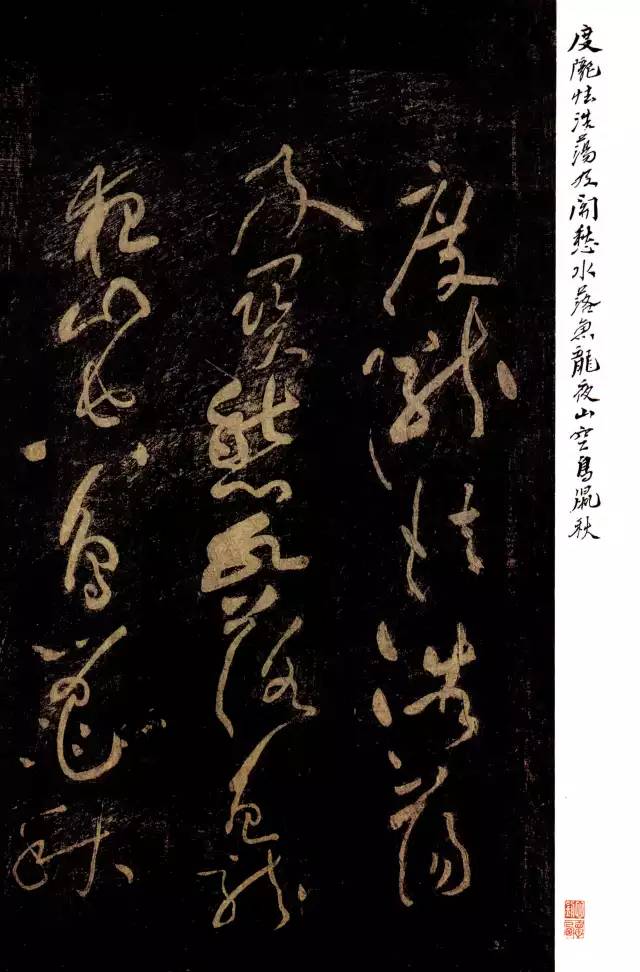 度隴怯浩蕩及関愁水落魚龍夜山空鳥鼠秋
度隴怯浩蕩
及關愁水落魚龍
夜山空鳥鼠秋